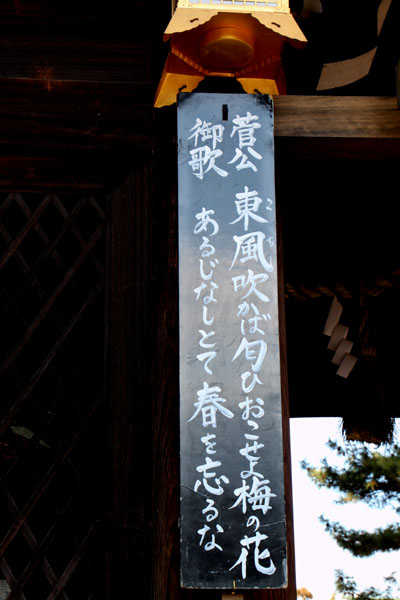 菅公御歌
東風吹かば匂ひおこせよ梅の花
こち
あるじなしとて春を忘るな